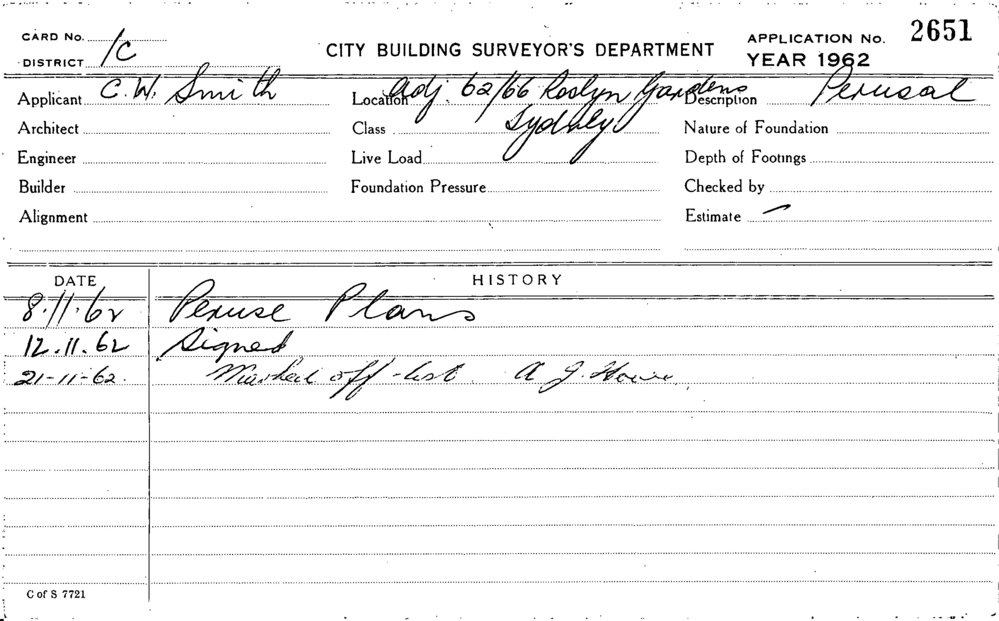 CARD No.
DISTRICT 1C
CITY BUILDING SURVEYOR'S DEPARTMENT
APPLICATION No. 2651
YEAR 1962
Applicant C. W. Smith
Location adj. 62/66 Roslyn Gardens
Description Perusal
Architect
Class Sydney
Nature of Foundation
Engineer
Live Load
Depth of Footings
Builder
Foundation Pressure
Checked by
Alignment
Estimate —
DATE HISTORY
8.11.62 Peruse Plans
12.11.62 Signed
21-11-62. Marked off list. A J.
C of S 7721